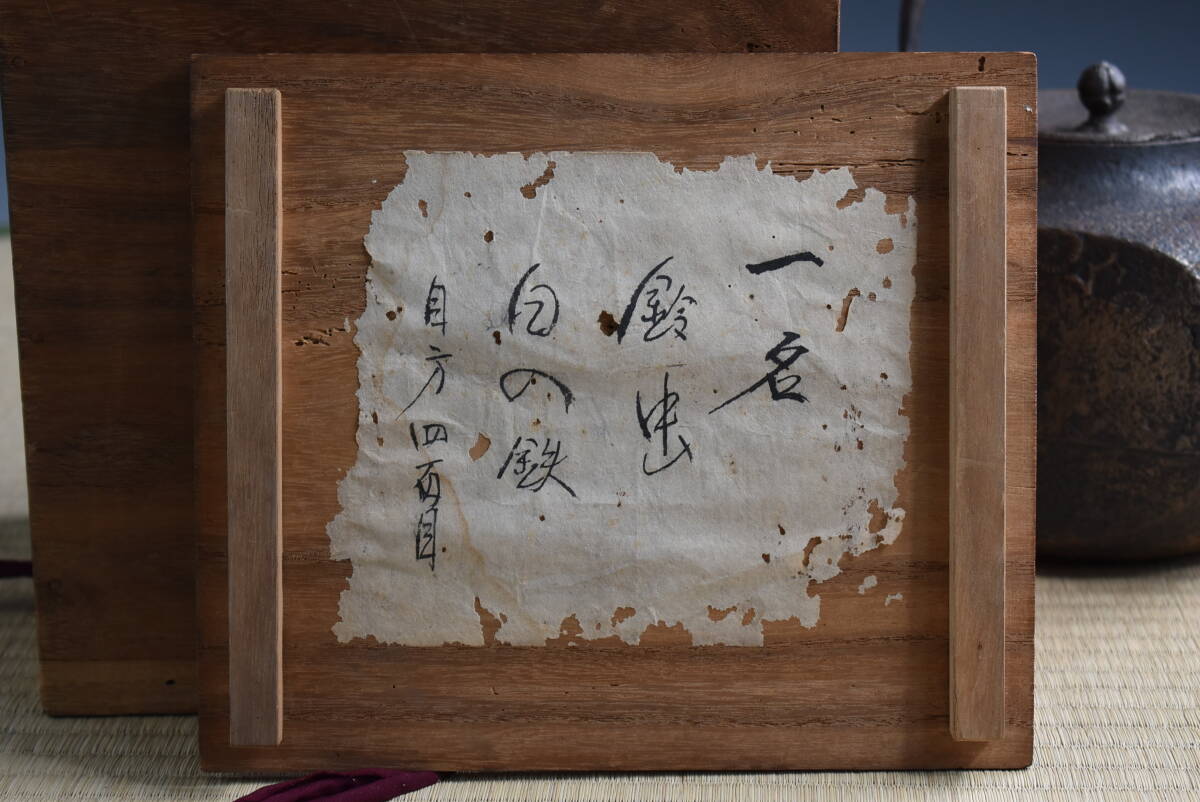 一名
鈴虫
白の鉄
目方四百目